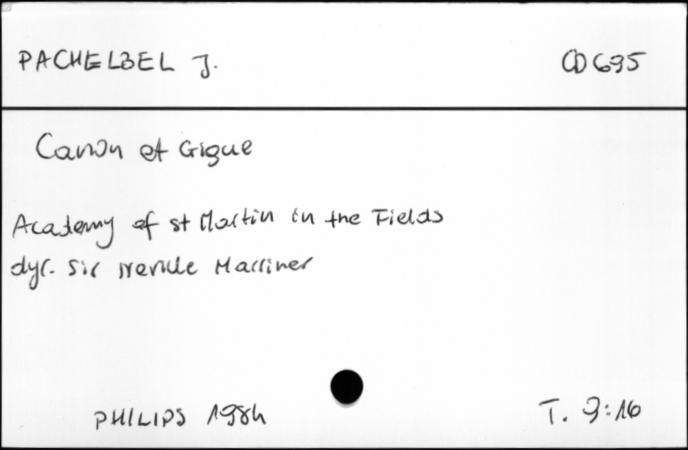 PACHELBEL J. CD 695
Canon et Gigue
Academy of st Martin in the Fields
dyr. Sir Neville Marriner
PHILIPS 1984 T. 9:16